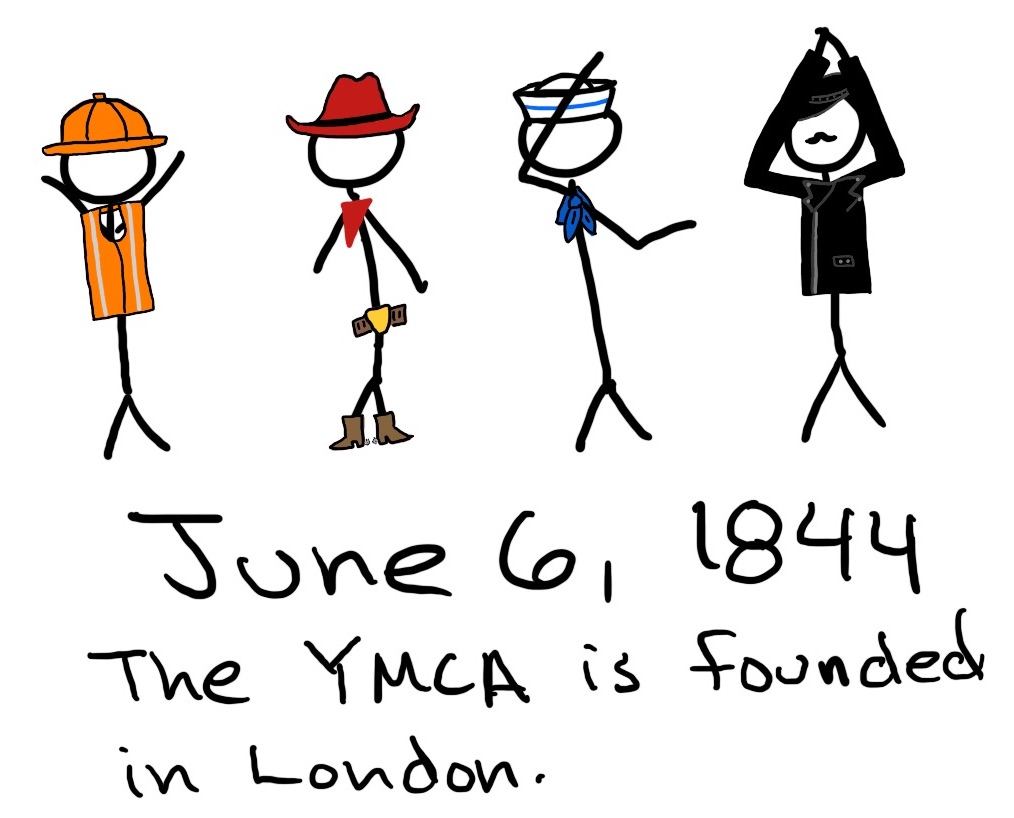 June 6, 1844
The YMCA is founded
in London.